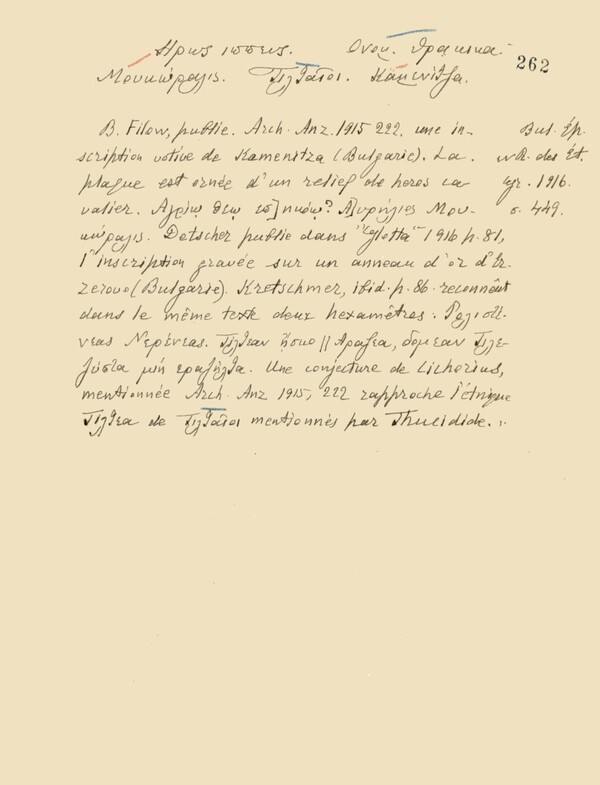 Ηρως ιππευς. Ονομ. Θρακικα.
262
Μουκώραλις. Τιλθαῖοι. Κάμενιτζα.
B. Filow, publie. Arch. Anz. 1915 222. une in-
scription votive de Kamenitza (Bulgarie). La
plaque est ornée d'un relief de heros ca
valier. θεῳ Αὐρήλιες Μου-
κώραλις. Detscher publie dans "Glotta" 1916 p. 81,
l'inscription gravée sur un anneau d'or d'Ez-
zerovo (Bulgarie). Kretschmer, ibid. p. 86 reconnaît
dans le même texte deux hexamètres. Ρολιστε-
νεας Νερένεας. Τιλτεαν ἤσκο || Αραζεα, δομεαν Τιλε-
ζύπτα μιη εραζηλτα. Une conjecture de Cichorius,
mentionnée Arch. Anz 1915, 222 rapproche l'étnique
Τιλθεα de Τιλθαῖοι mentionnés par Thucidide.
Bul. Ép.
R. des Ét.
gr. 1916.
σ. 449.